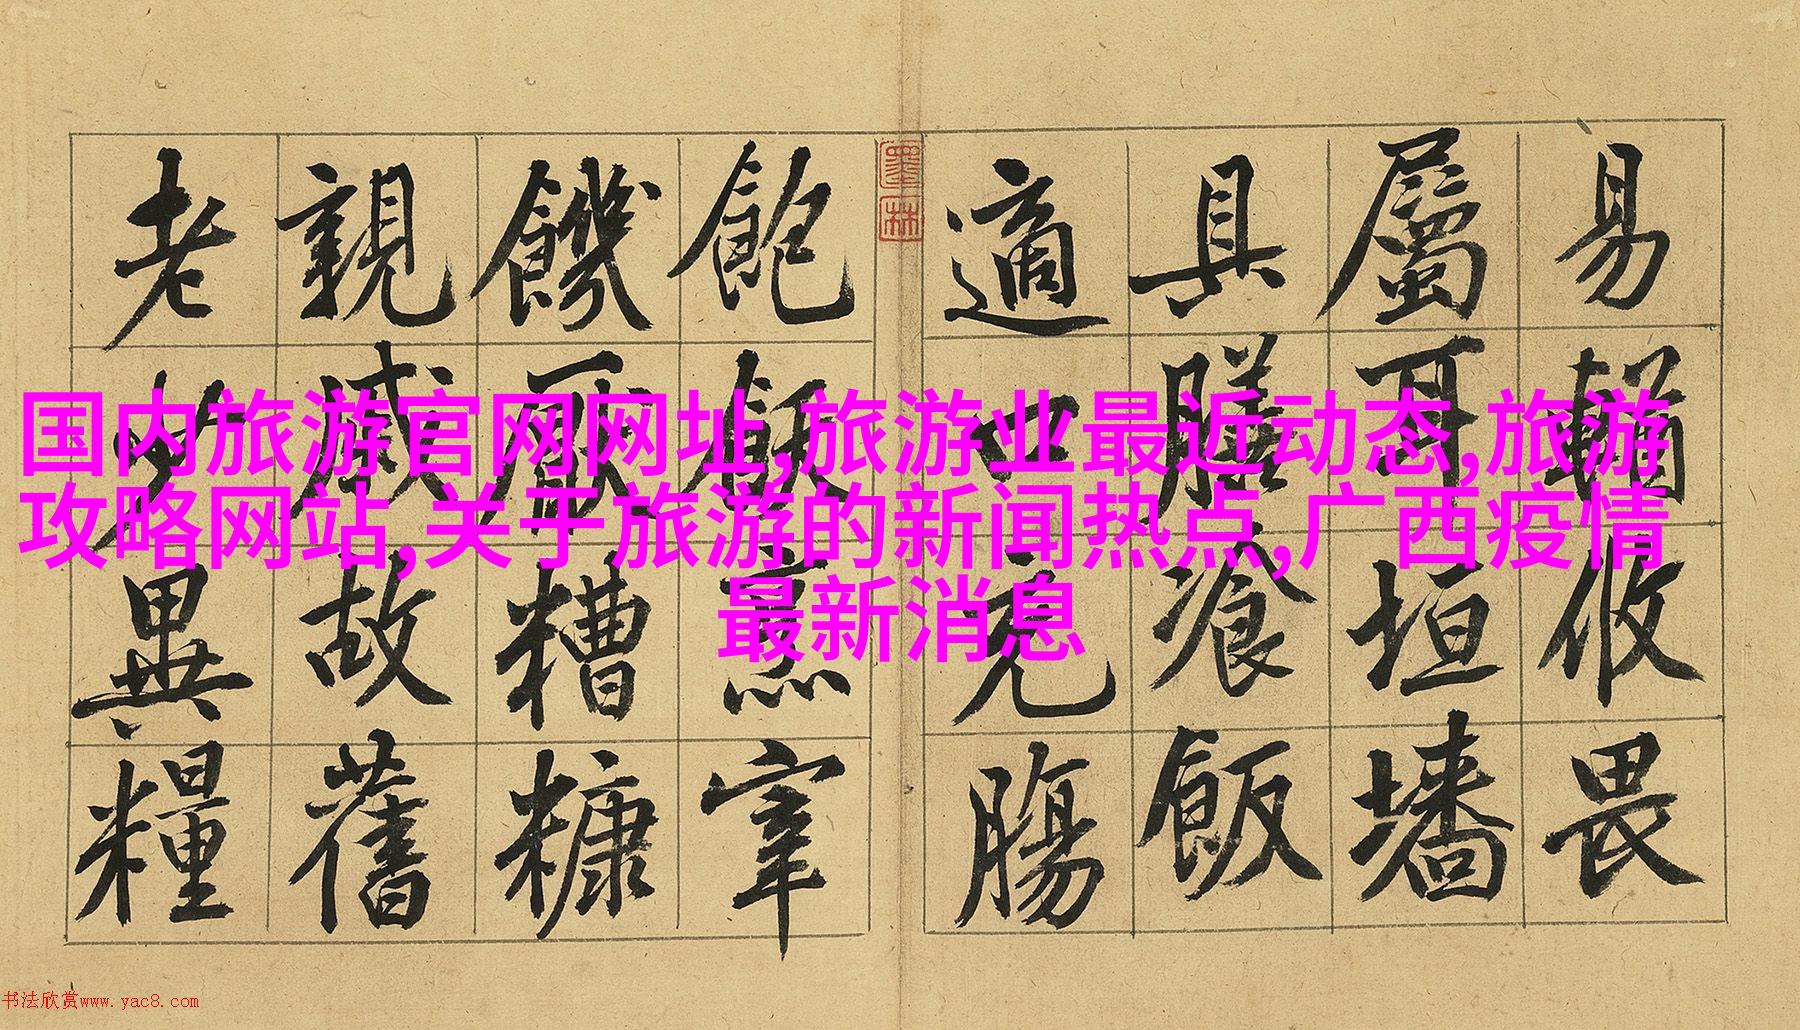 易輶攸畏
屬耳垣墻
具膳湌飯
適口充腸
墨林
飽飫烹宰
饑厭糟糠
親戚故舊
老少異糧
国内旅游官网网址,旅游业最近动态,旅游
攻略网站,关于旅游的新闻热点,广西疫情
最新消息
书法欣赏www.yac8.com